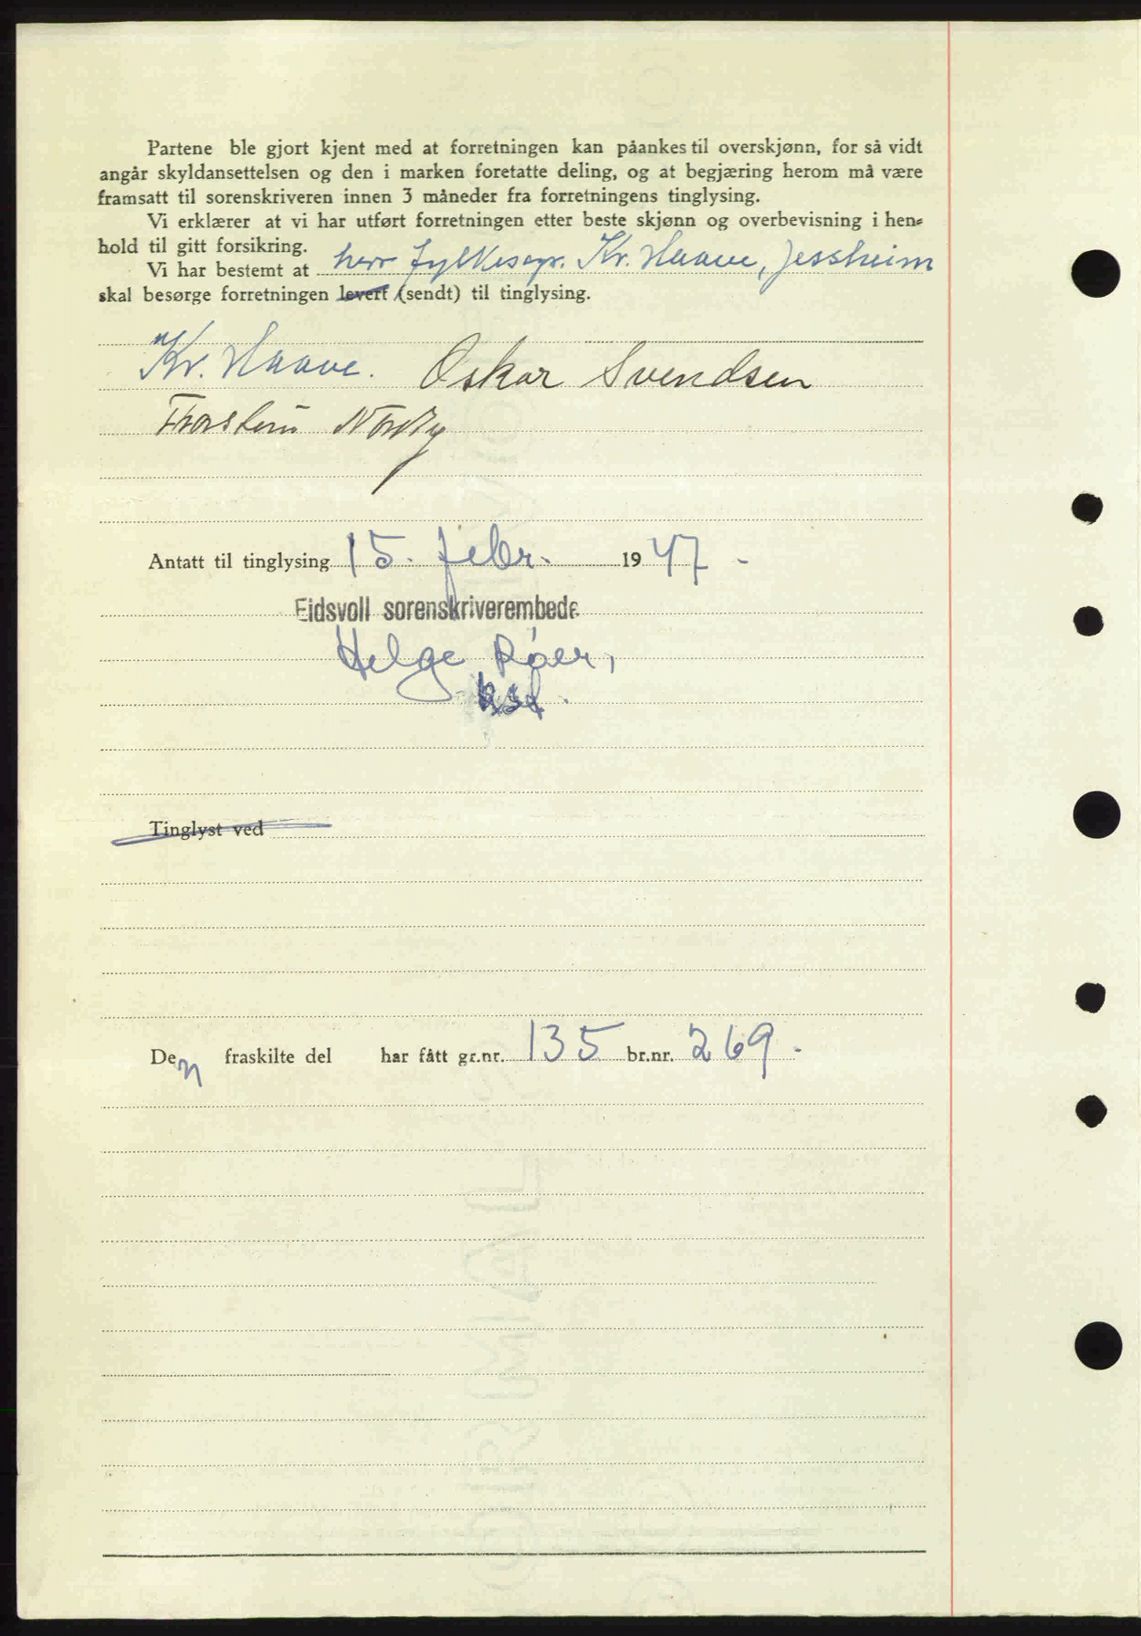 Partene ble gjort kjent med at forretningen kan påankes til overskjønn, for så vidt
angår skyldansettelsen og den i marken foretatte deling, og at begjæring herom må være
framsatt til sorenskriveren innen 3 måneder fra forretningens tinglysing.
Vi erklærer at vi har utført forretningen etter beste skjønn og overbevisning i hen=
hold til gitt forsikring.
Vi har bestemt at herr fylkesagr. Kr. Haave, Jessheim
skal besørge forretningen levert (sendt) til tinglysing.
Kr. Haave. Oskar Svendsen
Thorstein Nordby
Antatt til tinglysing 15. febr. 1947.
Eidsvoll sorenskriverembede
Helge Røer,
Tinglyst ved
Den fraskilte del har fått gr.nr. 135 br.nr. 269.